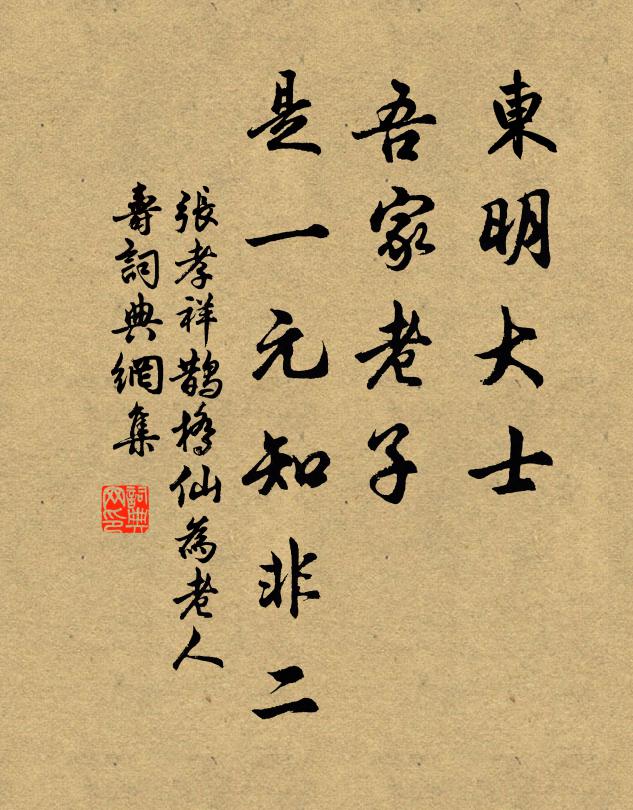 東明大士
吾家老子
是一元知非二
張孝祥鵲橋仙為老人
壽詞典網集
詞典
网印